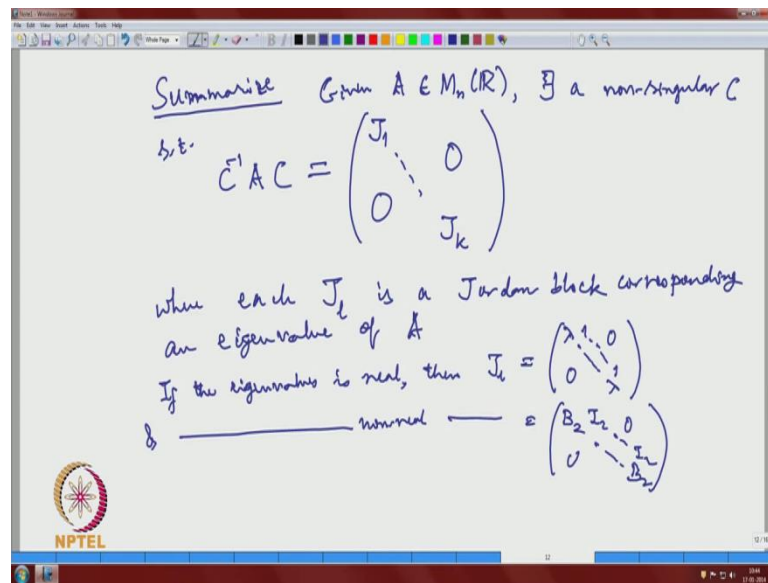 Note1 - Windows Journal
File Edit View Insert Actions Tools Help
Whole Page
Summarize Given A ∈ Mₙ(ℝ), ∃ a non-singular C
s.t.
C⁻¹AC = ( J₁ 0
0 Jₖ )
where each Jₗ is a Jordan block corresponding
an eigenvalue of A
If the eigenvalues is real, then Jₗ = ( λ 1 0
1
0 λ )
& ——— non-real —— = ( B₂ I₂ 0
I₂
0 B₂ )
NPTEL
12
10:44